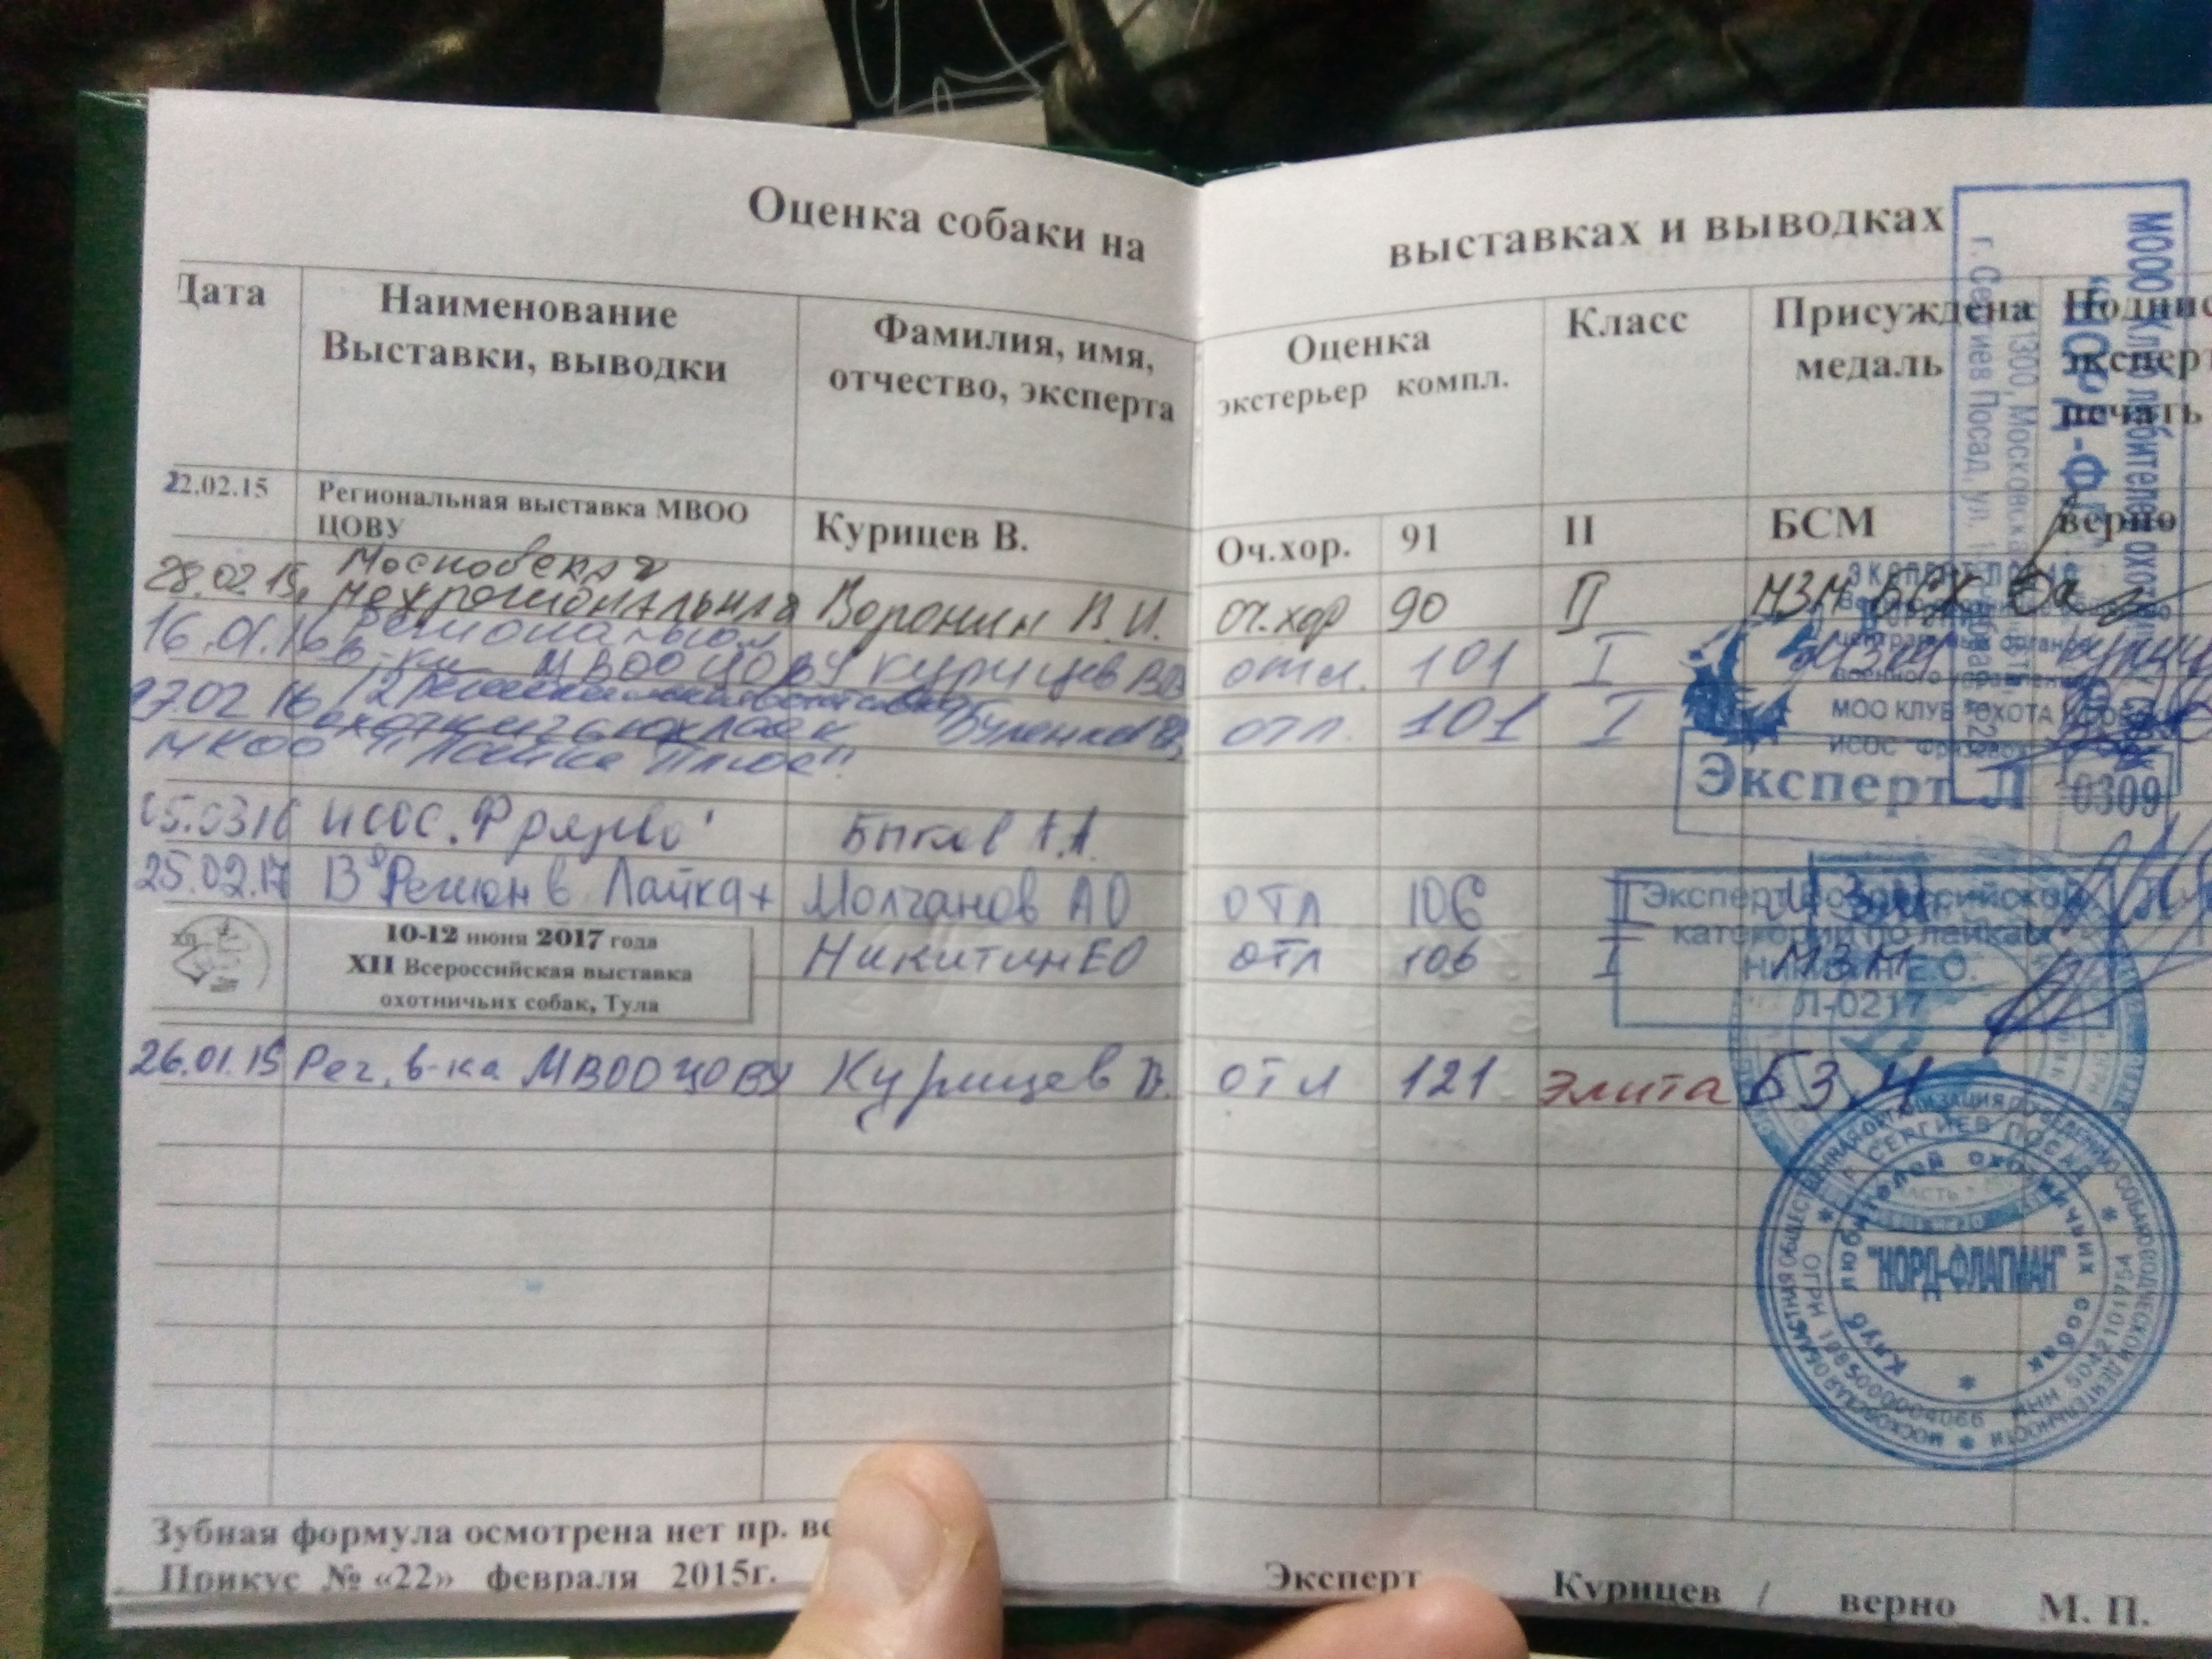 Оценка собаки на выставках и выводках
Дата Наименование Выставки, выводки Фамилия, имя, отчество, эксперта Оценка экстерьер компл. Класс Присуждена медаль эксперт печать
22.02.15 Региональная выставка МВОО ЦОВУ Курицев В. Оч.хор. 91 II БСМ верно
28.02.15 Московская межрегиональная Воронин В.И. оч.хор 90 II МЗМ БСК
16.01.16 региональная в-ка МВОО ЦОВУ Курицев ВВ отл. 101 I МЗМ
27.02 16 отл. 101 I
МКОО "Лайка Плюс".
05.03 16 ИСОС. Фрязево Быков А.А.
25.02.17 В Регион в Лайка+ Молчанов АО отл 106 II МЗМ
10-12 июня 2017 года
XII Всероссийская выставка
охотничьих собак, Тула
Никитин ЕО отл 106 I МЗМ
26.01.15 Рег. в-ка МВОО ЦОВУ Курицев В. отл 121 элита БЗМ
МООО Клуб любителей охот
"НОРД-ФЛ
г. Сергиев Посад, ул.
1300, Московска
МОО КЛУБ ОХОТА
ИСОС Фрязево
Эксперт Л 0309
Эксперт Всероссийской
категории по лайкам
Никитин Е.О.
Л-0217
Клуб любителей охотничьих собак
"НОРД-ФЛАГМАН"
Г. СЕРГИЕВ ПОСАД
ОГРН 1085000004066 ИНН 5042101754
Зубная формула осмотрена нет пр.
Прикус № «22» февраля 2015г.
Эксперт Курицев / верно М. П.